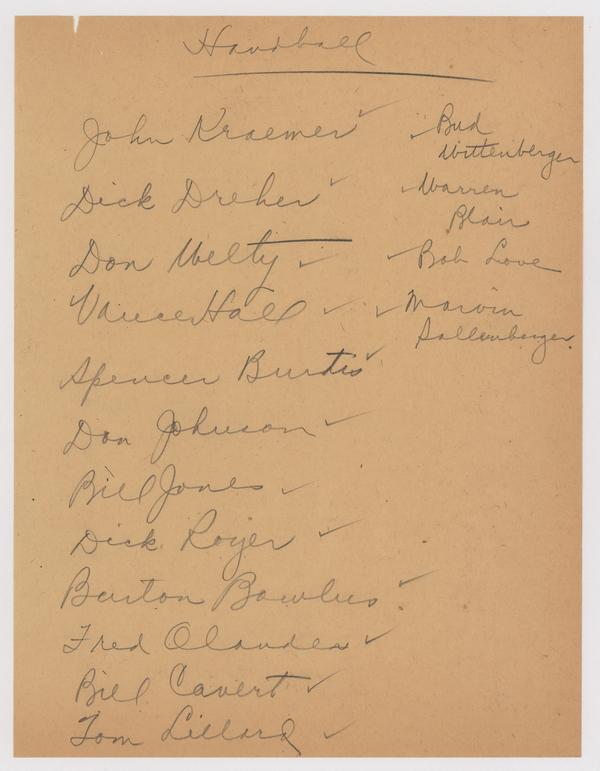 Handball
John Kraemer ✓
Dick Dreher ✓
Don Welty ✓
Vance Hall ✓
Spencer Burtis ✓
Don Johnson ✓
Bill Jones ✓
Dick Royer ✓
Burton Bowlus ✓
Fred Olander ✓
Bill Cavert ✓
Tom Lillard ✓
✓ Bud
Wittenberger
✓ Warren
Blair
✓ Bob Love
✓ Marvin
Sollenberger.